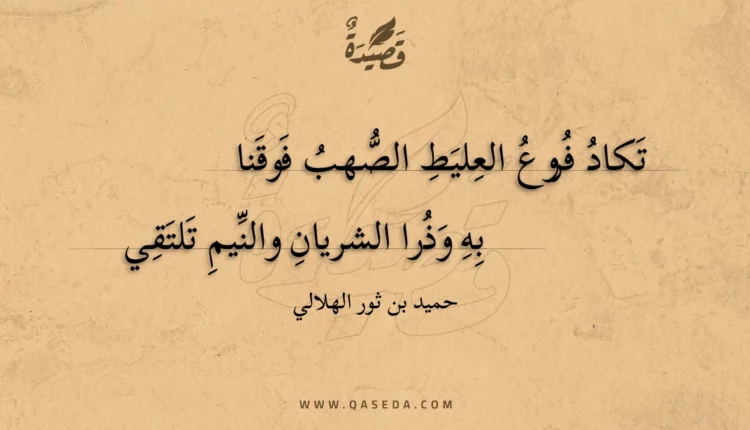 قَصِيْدَةٌ
تَكادُ فُروعُ العِليَطِ الصُّهبُ فَوقَنا
بِهِ وَذُرا الشريانِ والنِّيمِ تَلتَقِي
حميد بن ثور الهلالي
WWW.QASEDA.COM